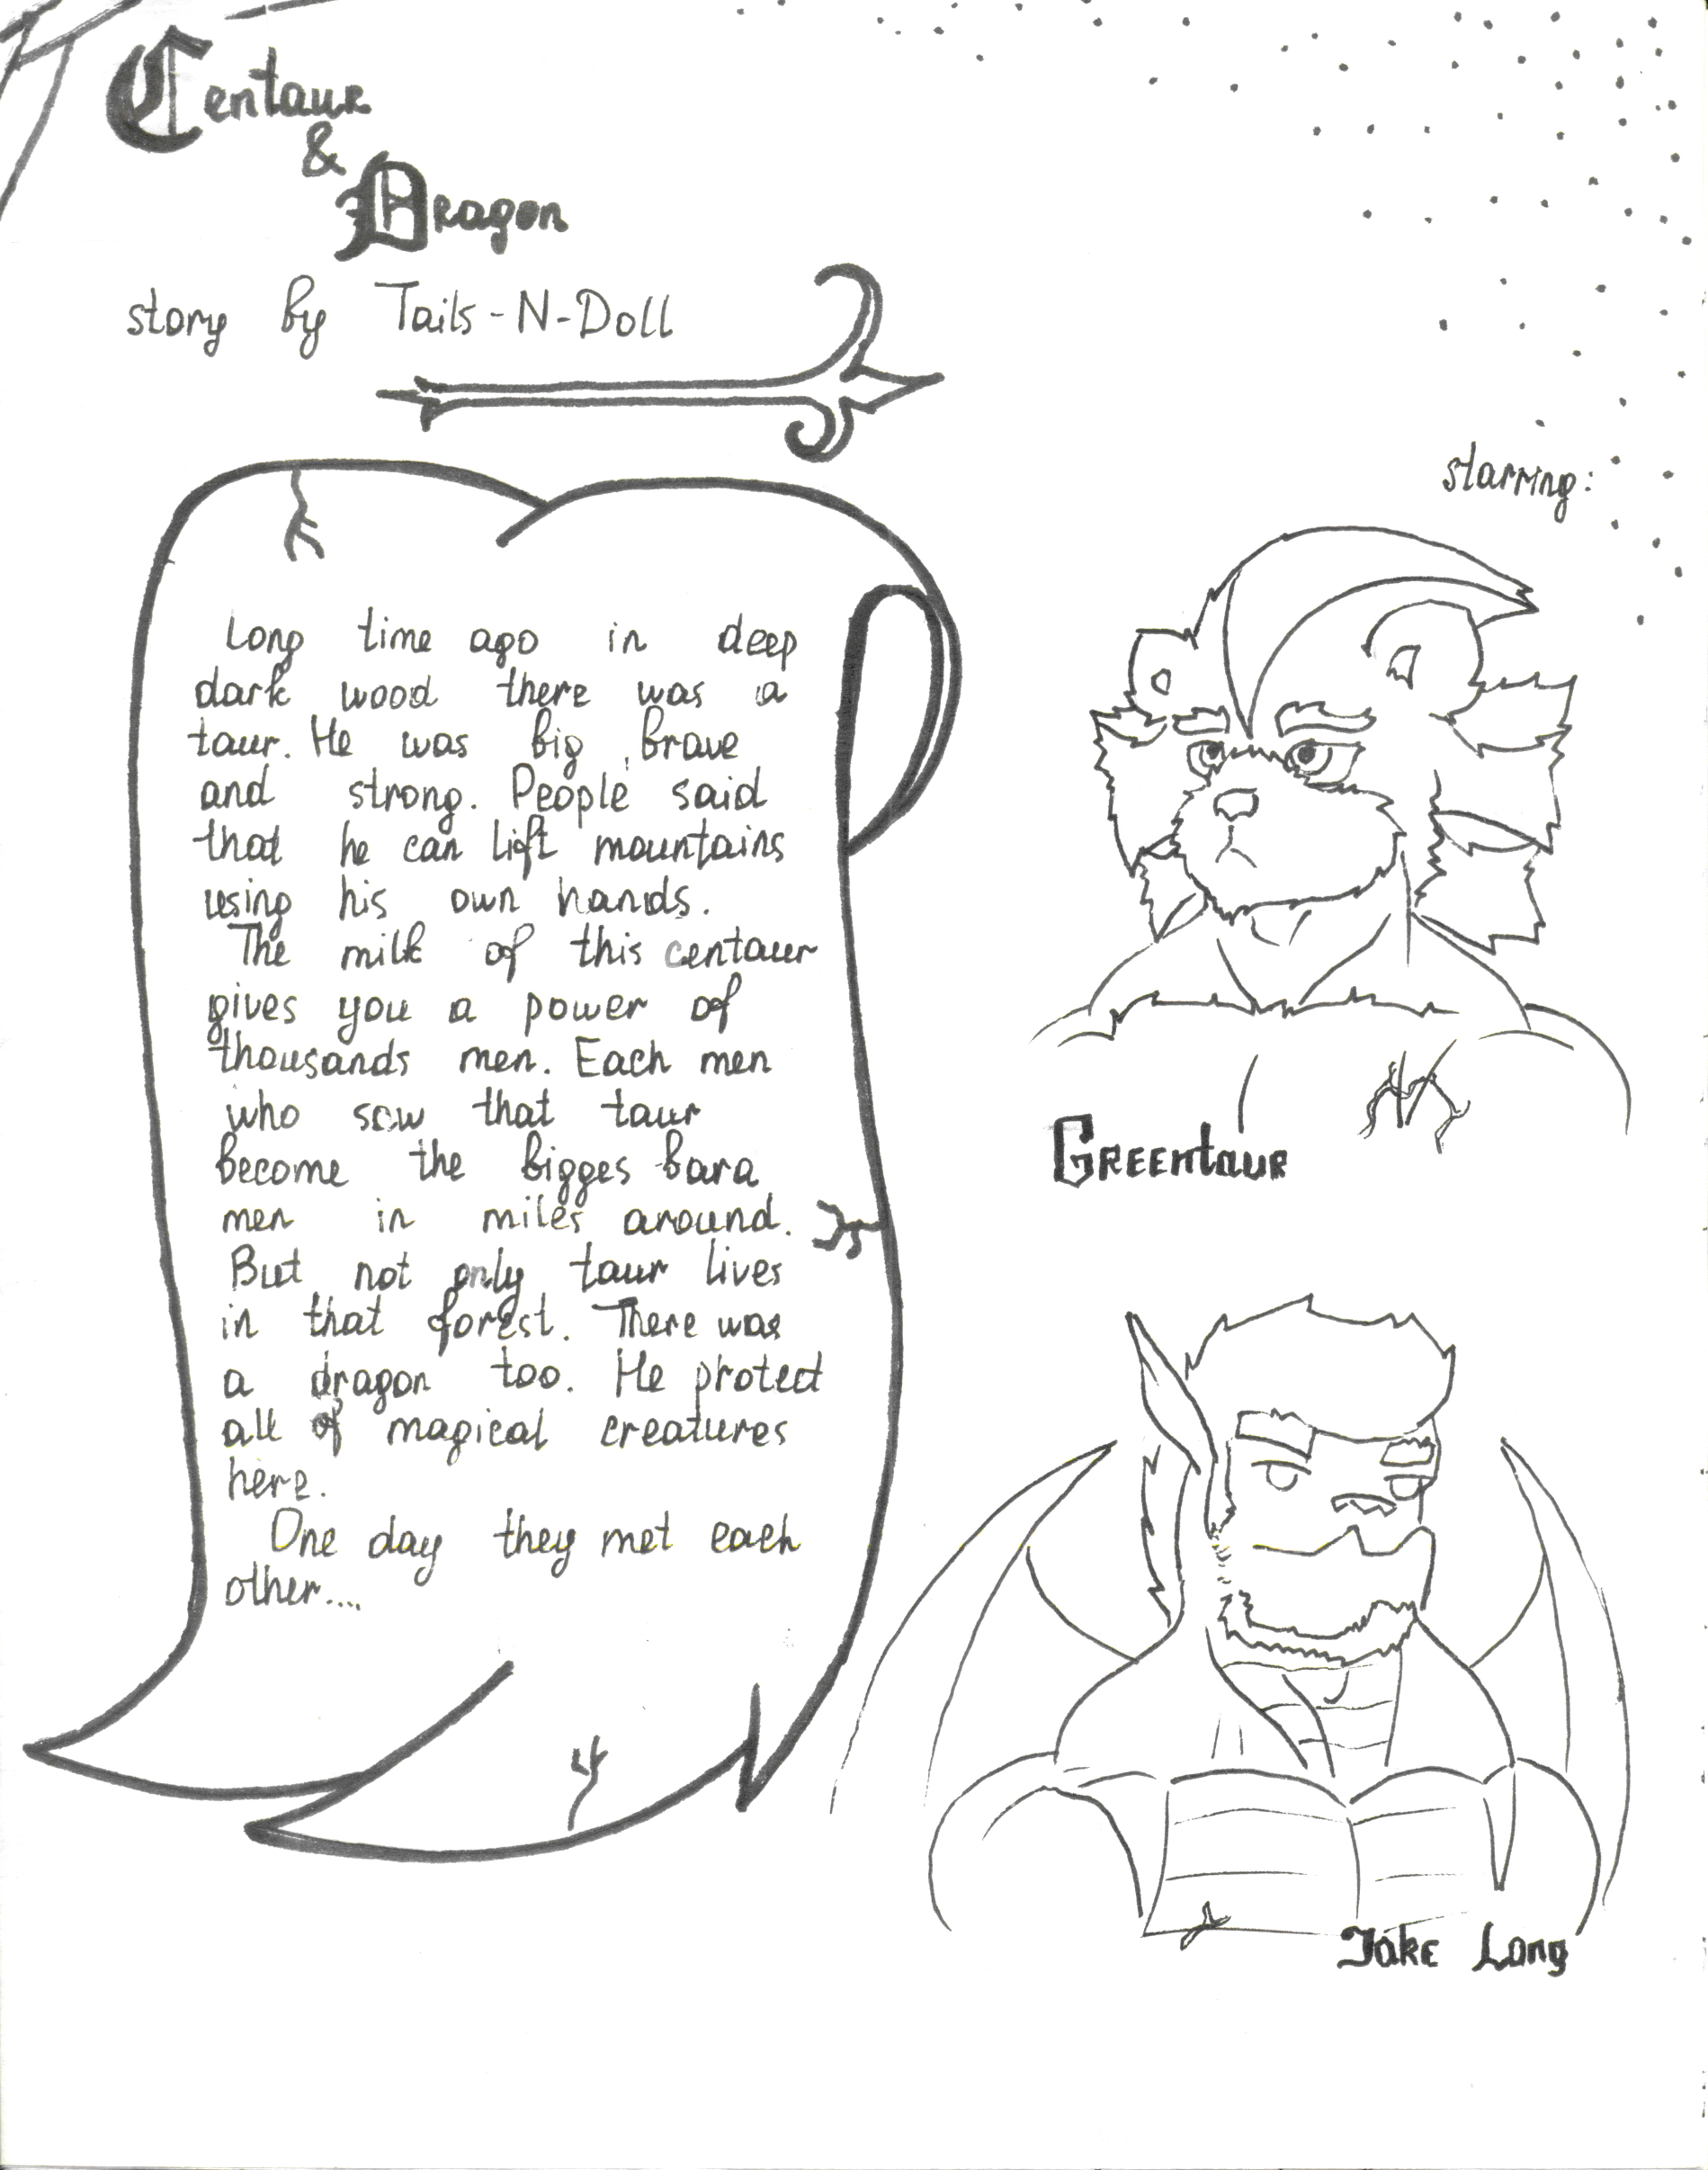 Centaur
&
Dragon
story by Tails-N-Doll
Long time ago in deep
dark wood there was a
taur. He was big, brave
and strong. People said
that he can lift mountains
using his own hands.
The milk of this centaur
gives you a power of
thousands men. Each men
who saw that taur
become the bigges bara
men in miles around.
But not only taur lives
in that forest. There was
a dragon too. He protect
all of magical creatures
here.
One day they met each
other....
starring:
Greentaur
Jake Long